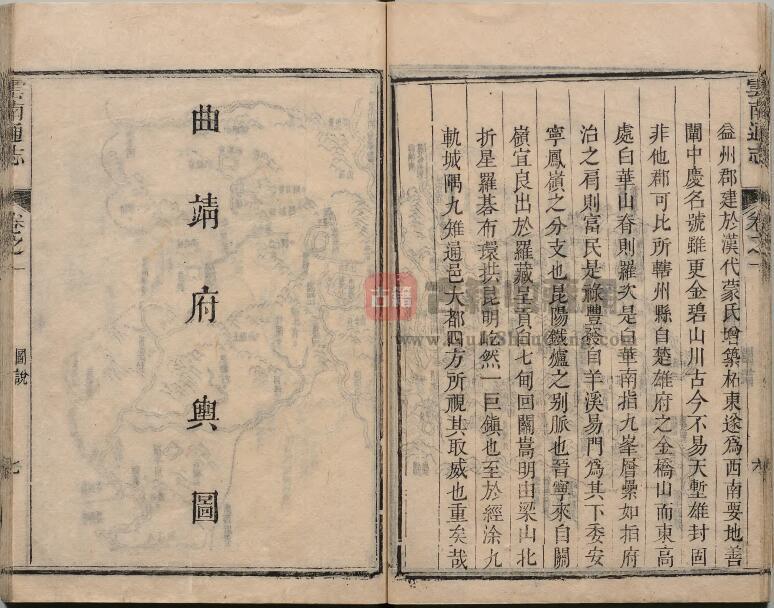 益州郡建於漢代蒙氏增築柘東遂爲西南要地善
闡中慶名號雖更金碧山川古今不易天塹雄封固
非他郡可比所轄州縣自楚雄府之金橋山而東高
處白華山脊則羅次是白華南指九峯層纍如指府
治之肩則富民是祿豐發自羊溪易門爲其下委安
寧鳳嶺之分支也昆陽鐵爐之别脈也晉寧來自關
嶺宜良出於羅藏呈貢自七甸回關嵩明由梁山北
折星羅碁布環拱昆明屹然一巨鎮也至於經涂九
軌城隅九雉通邑大都四方所視其取威也重矣哉
雲南通志
卷之一
六
曲靖府輿圖
雲南通志
卷之一
圖說
七
古籍